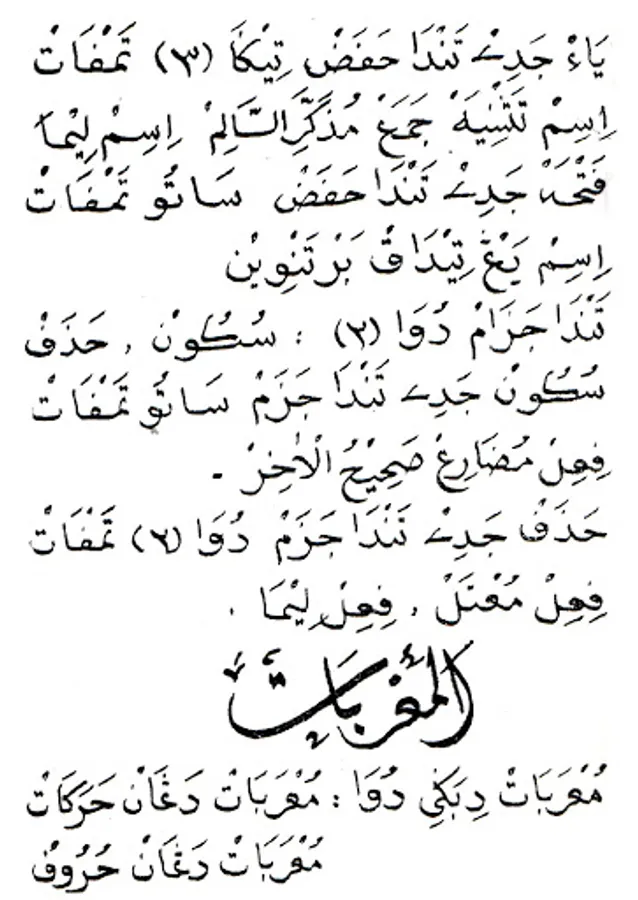 يَاءْ جَدِيْ تَنْدَا حَفَضْ تِيْكَا (٣) تَمْفَاتْ
اِسِمْ تَثْنِيَهْ جَمَعْ مُذَكَّرِ السَّالِمْ اِسِمْ لِيْمَا
فَتْحَهْ جَدِيْ تَنْدَا حَفَضْ سَاتُو تَمْفَاتْ
اِسِمْ يَڠْ تِيْدَاقْ بَرْتَنْوِيْنْ
تَنْدَا جَزَامْ دُوَا (٢) : سُكُوْنْ , حَذَفْ
سُكُوْنْ جَدِيْ تَنْدَا جَزَمْ سَاتُو تَمْفَاتْ
فِعِلْ مُضَارِعْ صَحِيْحُ الْاٰخِرْ -
حَذَفْ جَدِيْ تَنْدَا جَزَمْ دُوَا (٢) تَمْفَاتْ
فِعِلْ مُعْتَلْ , فِعِلْ لِيْمَا .
المُعْرَبَات
مُعْرَبَاتْ دِبَكِي دُوَا : مُعْرَبَاتْ دَڠَانْ حَرَكَاتْ
مُعْرَبَاتْ دَڠَانْ حُرُوفْ